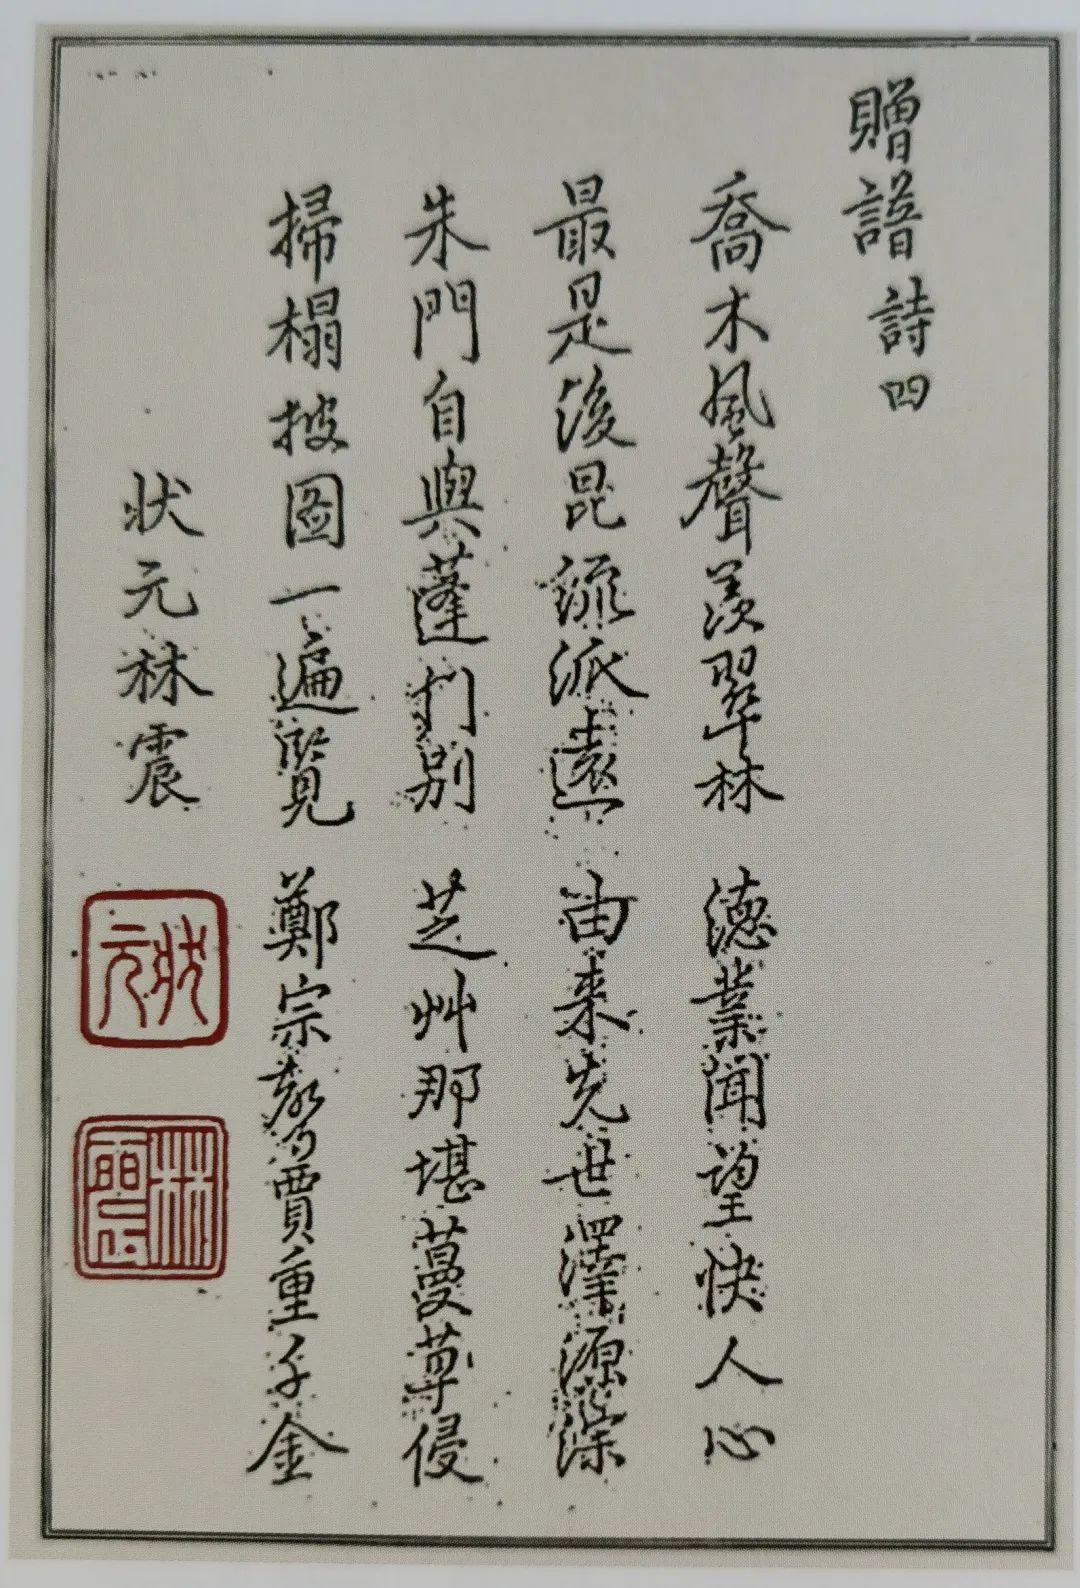 贈譜詩四
喬木風聲羨翠林 德業聞望快人心
最是後昆流派遠 由来先世澤源深
朱門自與蓬門別 芝艸那堪蔓草侵
掃榻披图一遍覽 鄭宗声價重千金
状元林震
状元
林震